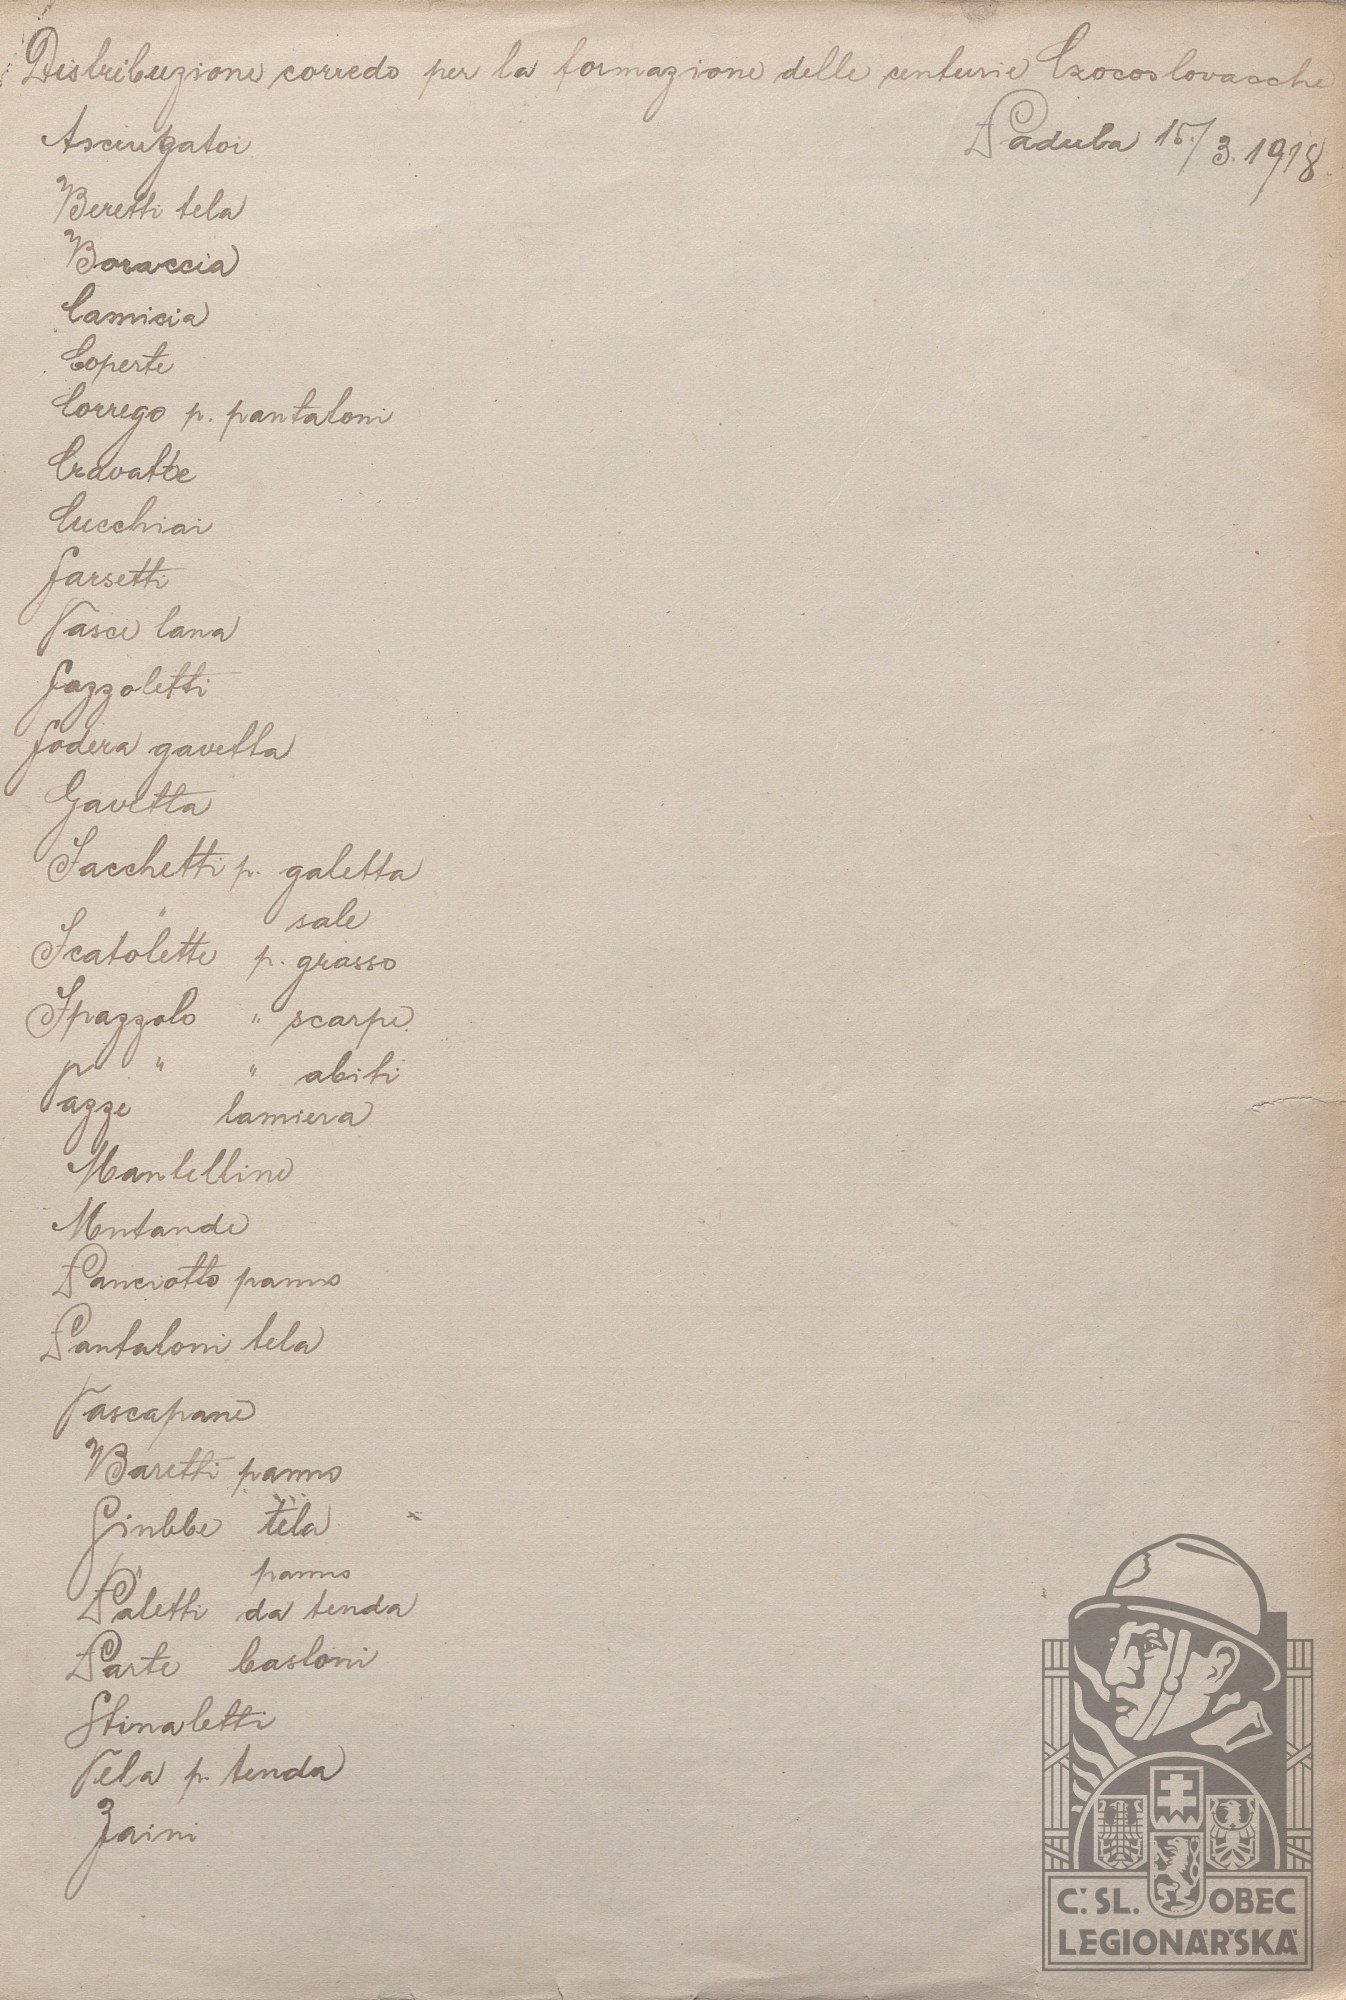 Distribuzione corredo per la formazione delle centurie Czocoslovacche
Paduba 15./3. 1918.
Asciugatoi
Beretti tela
Boraccia
Camicia
Coperte
Corrego p. pantaloni
Cravatte
Cucchiai
Farsetti
Fasce lana
Fazzoletti
Fodera gavetta
Gavetta
Sacchetti p. galetta
" sale
Scatolette p. grasso
Spazzolo " scarpe
" " abiti
Tazze lamiera
Mantelline
Mutande
Panciotto panno
Pantaloni tela
Tascapane
Baretti panno
Giubbe tela
" panno
Paletti da tenda
Parte bastoni
Stivaletti
Tela p. tenda
Zaini
Č. SL. OBEC
LEGIONÁŘSKÁ